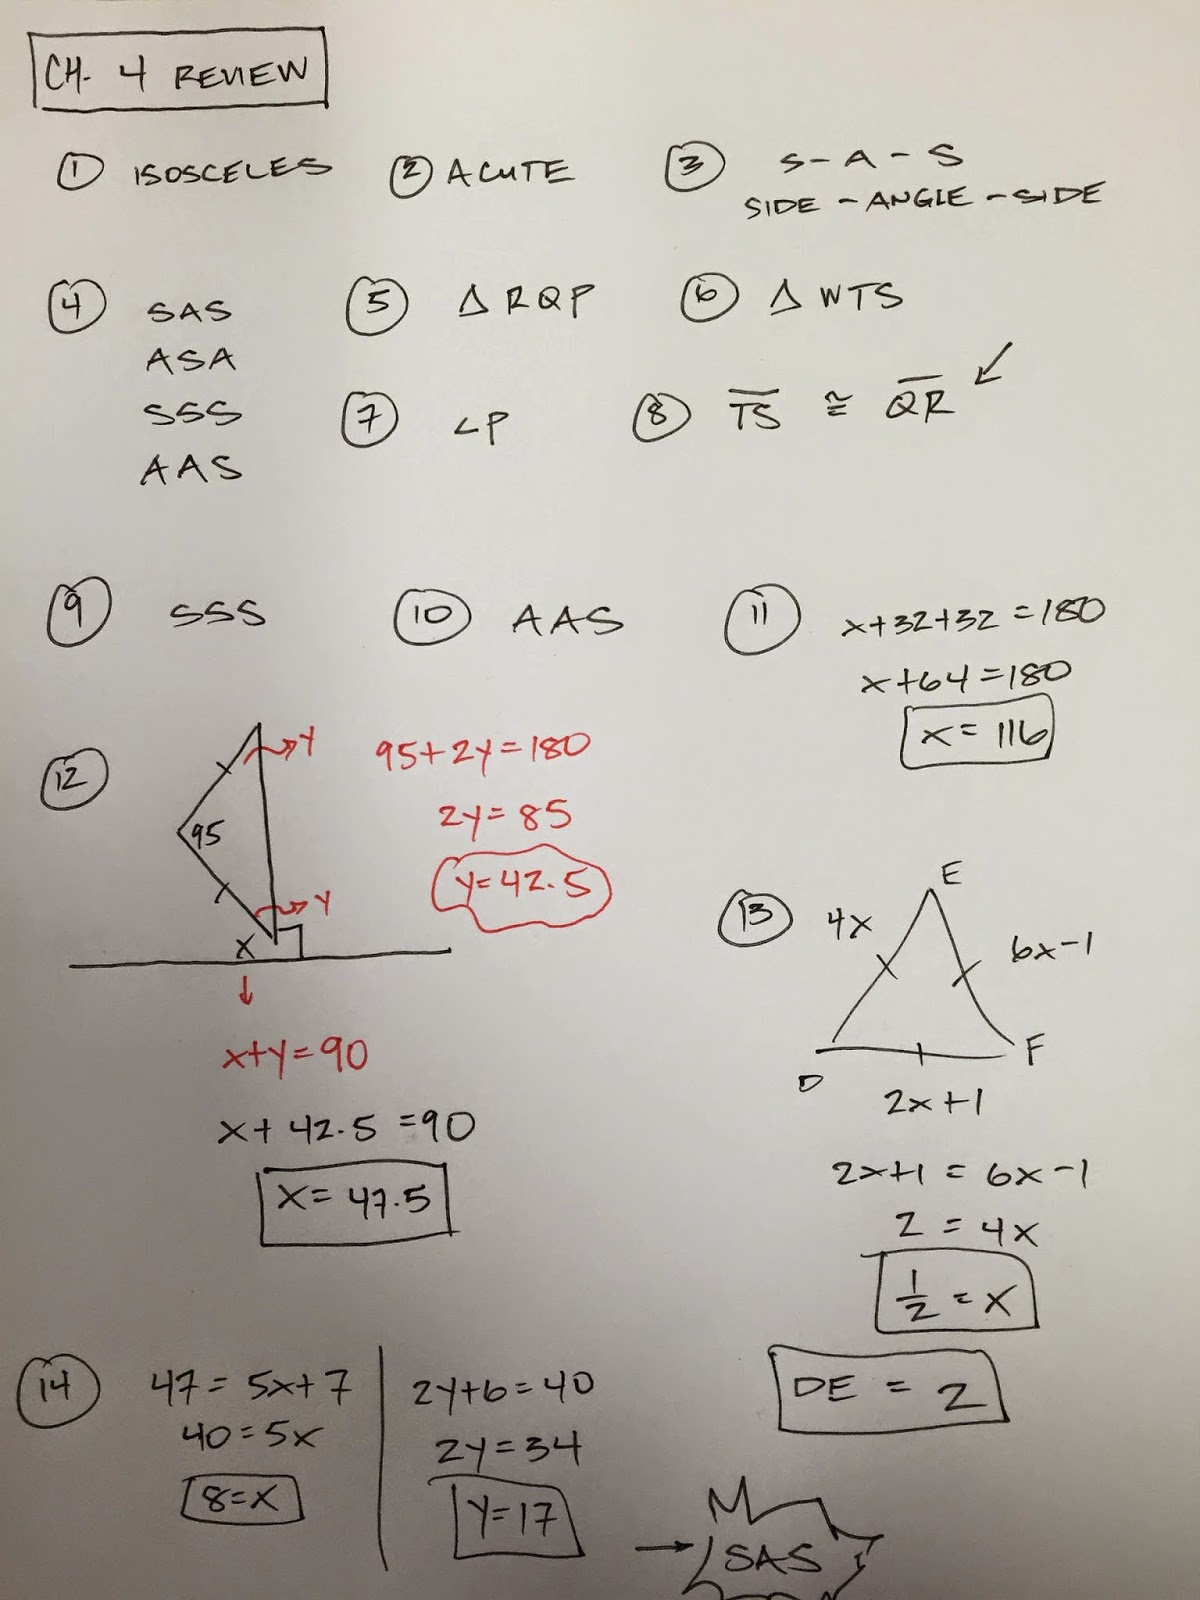 CH. 4 REVIEW
① ISOSCELES
② ACUTE
③ S-A-S
SIDE - ANGLE - SIDE
④ SAS
ASA
SSS
AAS
⑤ △ RQP
⑥ △ WTS
⑦ ∠P
⑧ T̅S̅ ≅ Q̅R̅ ↙
⑨ SSS
⑩ AAS
⑪ x+32+32 = 180
x+64=180
x = 116
⑫
Y
95
Y
x
95+2y=180
2y=85
y=42.5
x+y=90
x+42.5=90
x=47.5
⑬
E
4x
6x-1
D
F
2x+1
2x+1 = 6x-1
2 = 4x
1/2 = x
DE = 2
⑭ 47=5x+7
40=5x
8=x
2y+6=40
2y=34
y=17
→ SAS